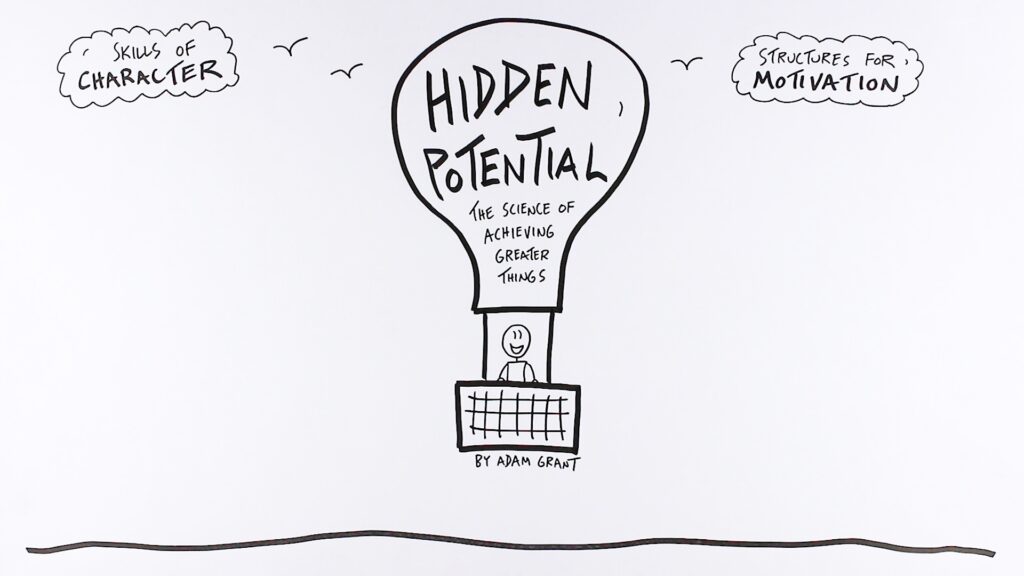 SKILLS OF
CHARACTER
HIDDEN
POTENTIAL
THE SCIENCE OF
ACHIEVING
GREATER
THINGS
BY ADAM GRANT
STRUCTURES FOR
MOTIVATION